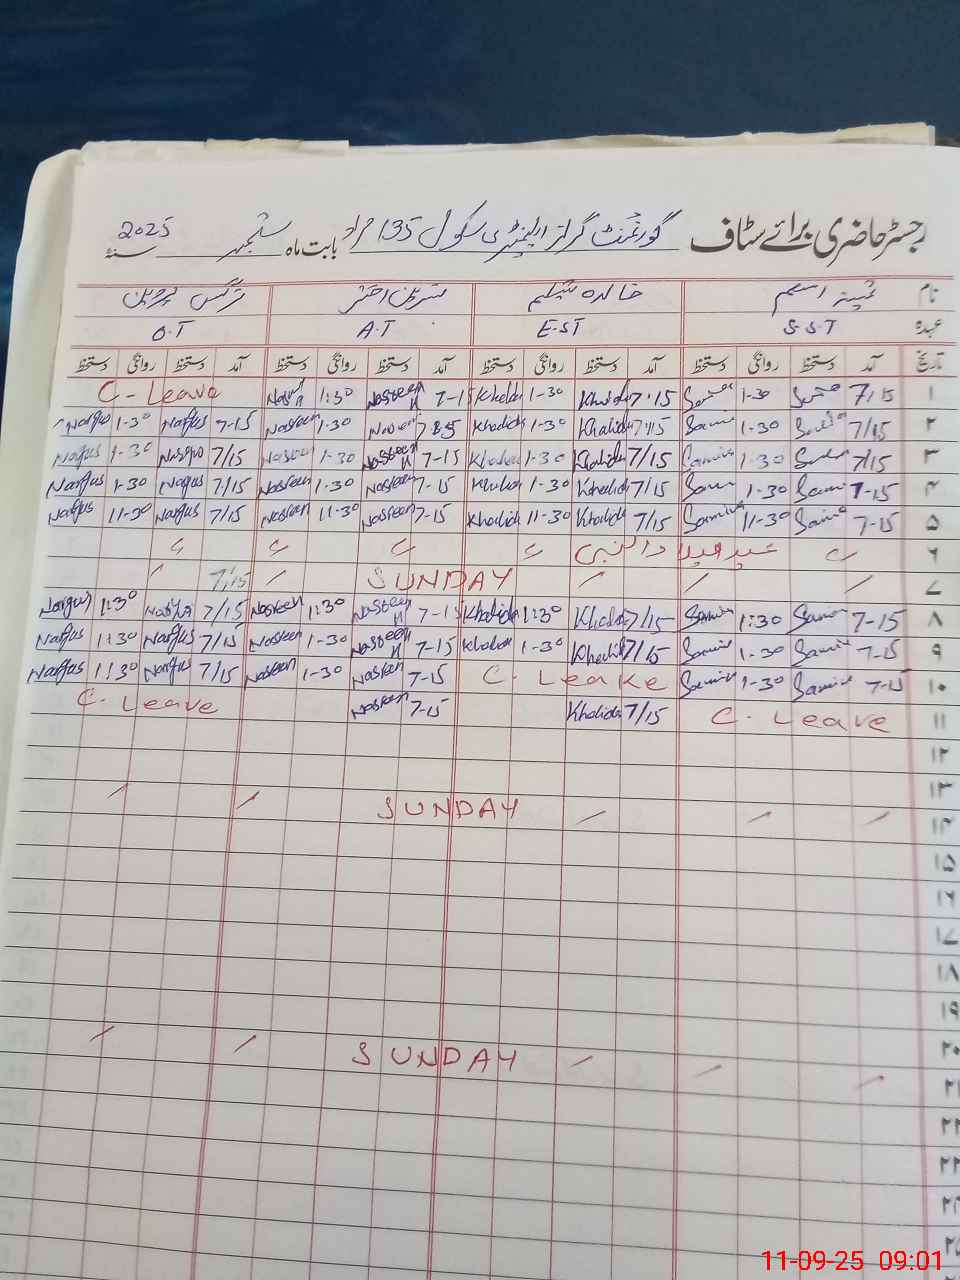 رجسٹر حاضری برائے سٹاف گورنمنٹ گرلز ایلیمنٹری سکول 135 مراد بابت ماہ ستمبر سنہ 2025
نام ثمینہ اسلم خالدہ نسرین اختر نرگس پروین
عہدہ S.S.T E.ST A.T O.T
تاریخ آمد دستخط روانگی دستخط آمد دستخط روانگی دستخط آمد دستخط روانگی دستخط آمد دستخط روانگی دستخط
۱ 7/15 1-30 7.15 Khalida 1-30 Khalida 7-15 Nasreen 1:30 C-Leave
۲ 7/15 1-30 7/15 Khalida 1-30 Khalida Nasreen 1-30 Nasreen 7-15 Nargus 1-30 Nargus
۳ 7/15 1-30 7/15 Khalida 1-30 Khalida 7-15 Nasreen 1-30 Nasreen 7/15 1-30 Nargus
۴ 7-15 1-30 7/15 Khalida 1-30 Khalida 7-15 Nasreen 1-30 Nasreen 7/15 Nargus 1-30 Nargus
۵ 7-15 11-30 7/15 Khalida 11-30 Khalida 7-15 Nasreen 11-30 Nasreen 7/15 Nargus 11-30 Nargus
۶ عید میلاد النبی
۷ SUNDAY 7/15
۸ 7-15 1:30 7/15 Khalida 1:30 Khalida 7-15 Nasreen 1:30 Nasreen 7/15 1:30 Nargus
۹ 7-15 1-30 7/15 Khalida 1-30 Khalida 7-15 Nasreen 1-30 Nasreen 7/15 Nargus 1:30 Nargus
۱۰ 7-15 1-30 C. Leake 7-15 Nasreen 1-30 Nasreen 7/15 Nargus 1:30 Nargus
۱۱ C-Leave 7/15 Khalida 7-15 Nasreen C. Leave
۱۲
۱۳
۱۴ SUNDAY
۱۵
۱۶
۱۷
۱۸
۱۹
۲۰
۲۱ SUNDAY
۲۲
۲۳
۲۴
۲۵
11-09-25 09:01